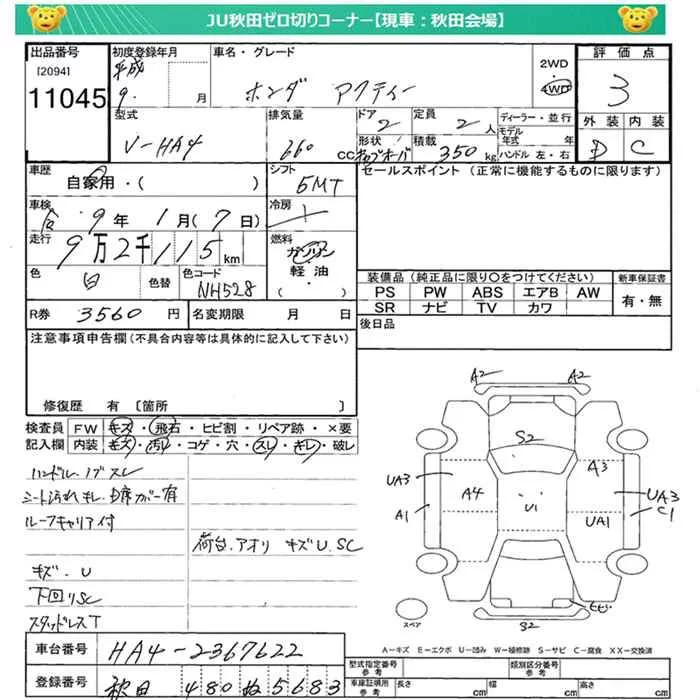 JU秋田ゼロ切りコーナー【現車：秋田会場】
出品番号
[2094]
11045
初度登録年月
平成
9. 月
車名・グレード
ホンダ アクティー
2WD
4WD
評価点
3
外装 内装
D C
型式
V-HA4
排気量
660 CC
ドア
2
定員
2 人
形状
積載
350 kg
ディーラー・並行
モデル年式 年
ハンドル 左・右
車歴
自家用・( )
シフト
5MT
セールスポイント（正常に機能するものに限ります）
車検
9年 1月(7日)
冷房
走行
9万2千115km
燃料
ガソリン
軽油
( )
色
白
色替
色コード
NH528
装備品（純正品に限り〇をつけてください）
PS PW ABS エアB AW
SR ナビ TV カワ
新車保証書
有・無
R券 3560円
名変期限 月 日
後日品
注意事項申告欄（不具合内容等は具体的に記入して下さい）
修復歴 有〔箇所 〕
検査員記入欄
FW キズ・飛石・ヒビ割・リペア跡・×要
内装 キズ・汚れ・コゲ・穴・スレ・キレ・破レ
ハンドル.ノブスレ
シート汚れキレ カバー有
ルーフキャリア付
荷台.アオリ キズU.SC
キズ.U
下回りSC
スタッドレスT
A2 A2
S2
A3
UA3
A4
U1
UA3
A1
UA1
C1
S2
スペア
A－キズ E－エクボ U－凹み W－補修跡 S－サビ C－腐食 XX－交換済
車台番号
HA4-2367622
登録番号
秋田 480ぬ5683
型式指定番号
参考
類別区分番号
参考
車庫証明用
参考
長さ cm
幅 cm
高さ cm